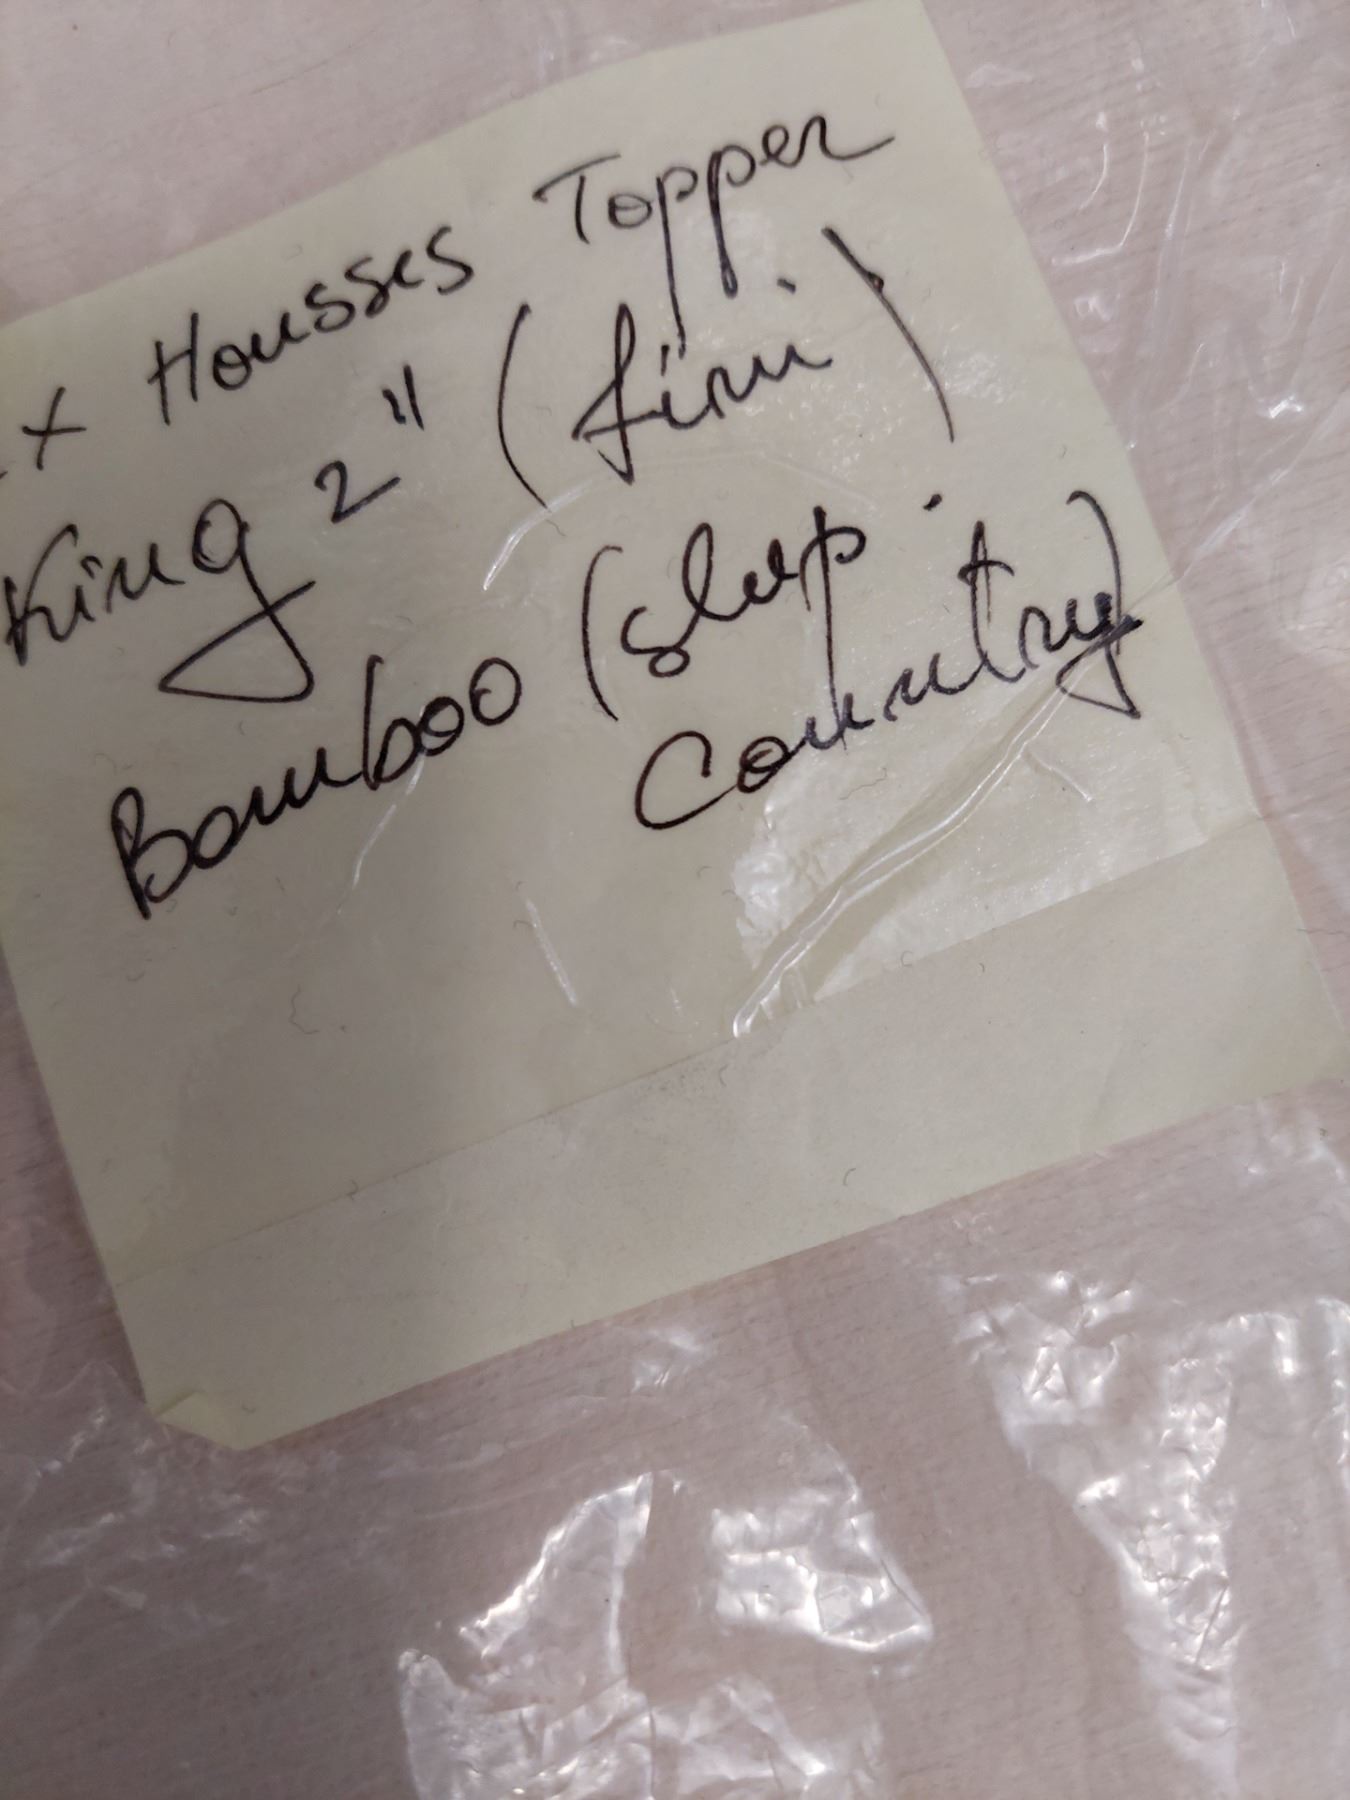 x Housses Topper
King 2" (fini)
Bamboo (sleep
Country)